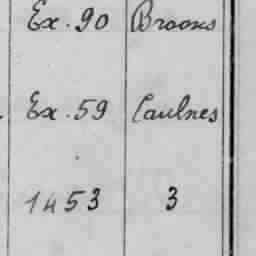 Ex. 90 Broons
Ex. 59 Caulnes
1453 3